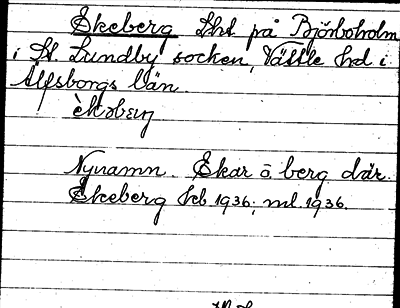 Ekeberg Lht på Björboholm
i St. Lundby socken, Vättle hd i
Älfsborgs län.
Nynamn. Ekar o berg där.
Ekeberg kb 1936; ml 1936.